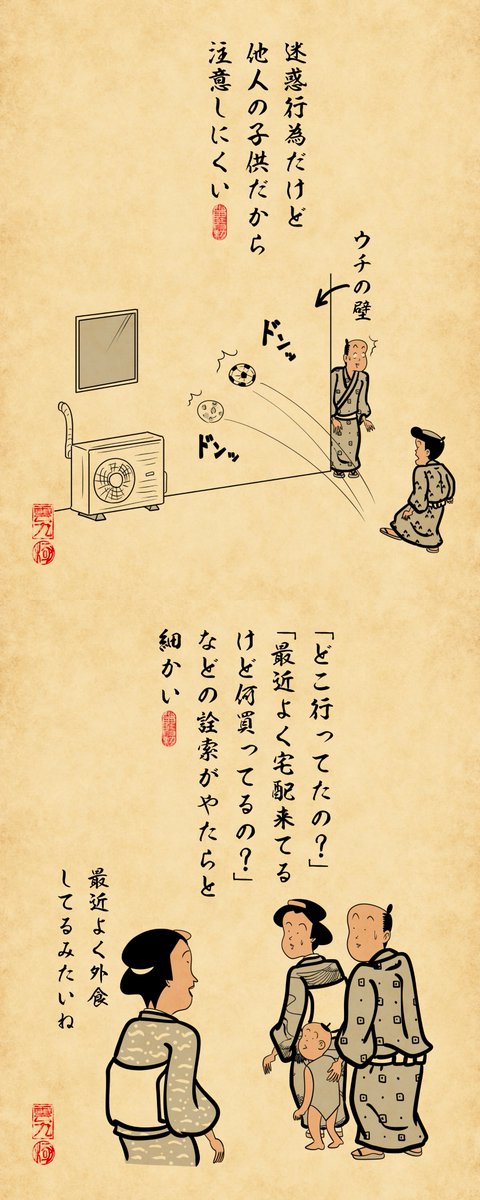 迷惑行為だけど
他人の子供だから
注意しにくい
ウチの壁
ドンッ
ドンッ
「どこ行ってたの？」
「最近よく宅配来てる
けど何買ってるの？」
などの詮索がやたらと
細かい
最近よく外食
してるみたいね